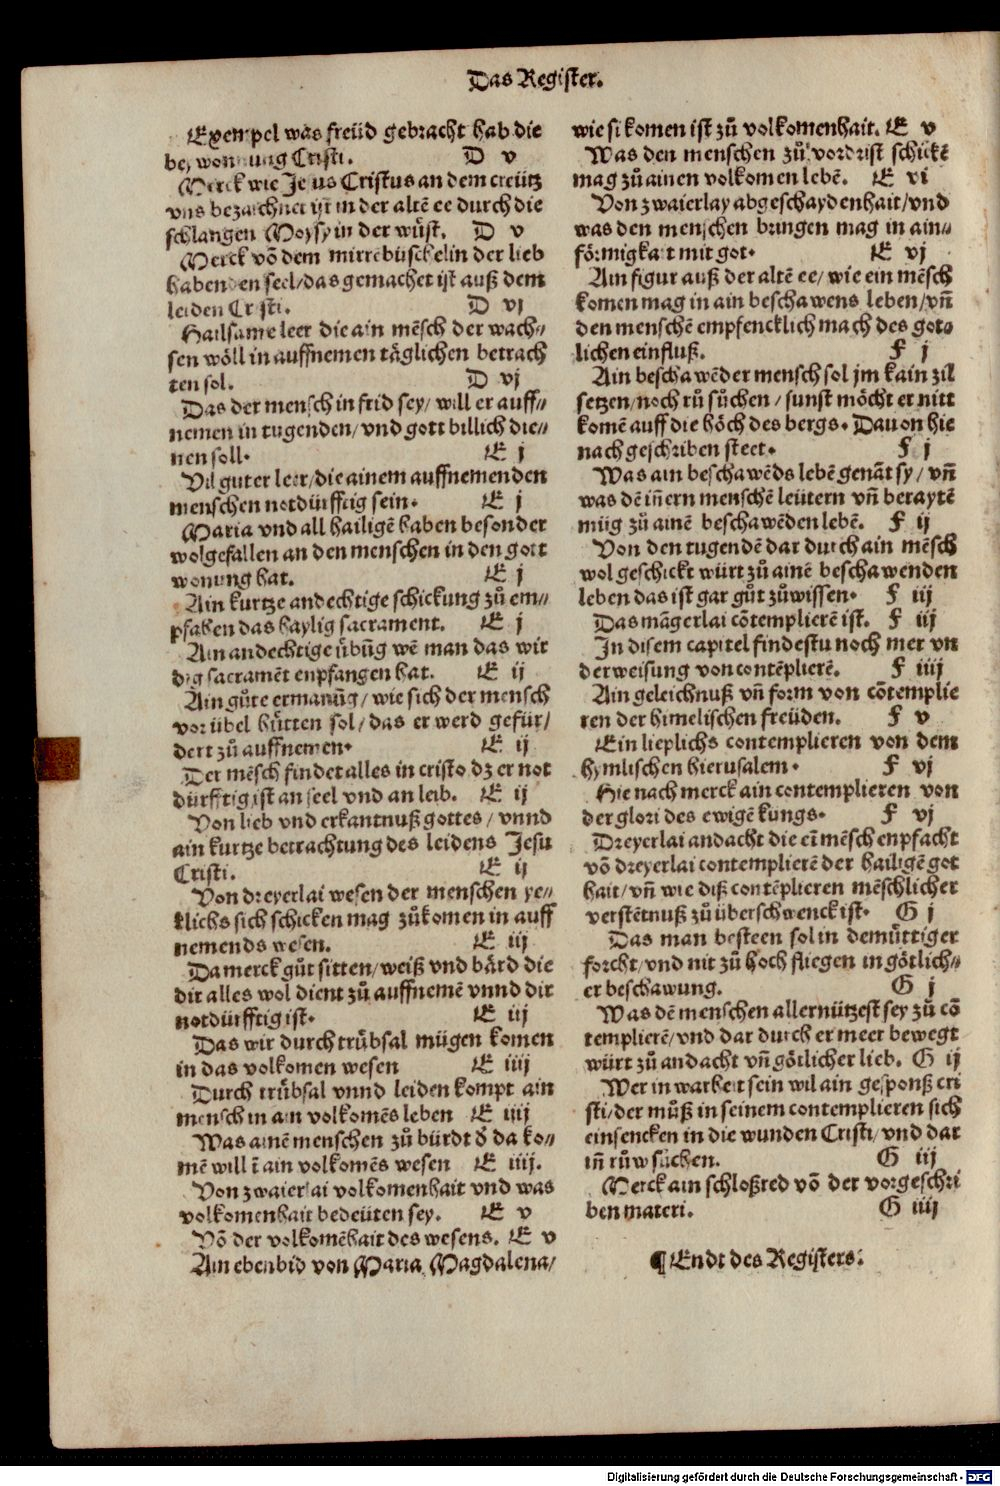 Das Register.
Exempel was freüd gebracht hab die
bey wonnung Cristi. D v
Merck wie Jesus Cristus an dem creütz
vns bezaichnet ist in der altē ee durch die
schlangen Moysy in der wůst. D v
Merck vō dem mirrēbüschelin der lieb
habenden seel/das gemachet ist auß dem
leiden Cristi. D vj
Hailsame leer die ain mēsch der wach⸗
sen wöll in auffnemen täglichen betrach
ten sol. D vj
Das der mensch in frid sey/ will er auff⸗
nemen in tugenden/ vnd gott billich die⸗
nen soll. E j
Vil guter leer/die ainem auffnemenden
menschen notdürfftig sein. E j
Maria vnd all hailigē haben besonder
wolgefallen an den menschen in den gott
wonung hat. E j
Ain kurtze andechtige schickung zů em⸗
pfahen das haylig sacrament. E j
Ain andechtige übūg wē man das wir
dig sacramēt enpfangen hat. E ij
Ain gůte ermanūg/ wie sich der mensch
vor übel hütten sol/ das er werd gefür/
dert zů auffnemen. E ij
Der mēsch findet alles in cristo dz er not
dürfftig ist an seel vnd an leib. E ij
Von lieb vnd erkantnuß gottes / vnnd
ain kurtze betrachtung des leidens Jesu
Cristi. E ij
Von dreyerlai wesen der menschen ye⸗
klichs sich schicken mag zůkomen in auff
nemends wesen. E iij
Da merck gůt sitten/weiß vnd bärd die
dir alles wol dient zů auffnemē vnnd dir
notdürfftig ist. E iij
Das wir durch trůbsal mügen komen
in das volkomen wesen E iiij
Durch trůbsal vnnd leiden kompt ain
mensch in ain volkomēs leben E iiij
Was ainē menschen zů bürdt ď da ko⸗
mē will ī ain volkomēs wesen E iiij.
Von zwaierlai volkomenhait vnd was
volkomenhait bedeüten sey. E v
Vō der volkomēhait des wesens. E v
Ain ebenbid von Maria Magdalena/
wie si komen ist zů volkomenhait. E v
Was den menschen zů vordrist schickē
mag zů ainen volkomen lebē. E vi
Von zwaierlay abgeschaydenhait/vnd
was den menschen bringen mag in ain⸗
förmigkait mit got. E vj
Ain figur auß der altē ee/ wie ein mēsch
komen mag in ain beschawens leben/vñ
den menschē empfencklich mach des got⸗
lichen einfluß. F j
Ain beschawēder mensch sol jm kain zil
setzen/noch rů sůchen / sunst möcht er nitt
komē auff die höch des bergs. Dauon hie
nach geschriben steet. F j
Was ain beschawēds lebē genāt sy/ vñ
was dē iñern menschē leütern vñ beraytē
müg zů ainē beschawēden lebē. F ij
Von den tugendē dar durch ain mēsch
wol geschickt würt zů ainē beschawenden
leben das ist gar gůt zůwissen. F iij
Das māgerlai cōtemplierē ist. F iij
In disem capitel findestu noch mer vn
derweisung von contēplierē. F iiij
Ain geleichnuß vñ form von cōtemplie
ren der himelischen freüden. F v
Ein lieplichs contemplieren von dem
hymlischen hierusalem. F vj
Hie nach merck ain contemplieren von
der glori des ewigē kungs. F vj
Dreyerlai andacht die eī mēsch enpfacht
vō dreyerlai contemplierē der hailigē got
hait/ vñ wie diß contēplieren mēschlicher
verstētnuß zů überschwenck ist. G j
Das man besteen sol in demůttiger
forcht/vnd nit zů hoch fliegen in götlich⸗
er beschawung. G j
Was dē menschen allernützest sey zů cō
templierē/vnd dar durch er meer bewegt
würt zů andacht vñ götlicher lieb. G ij
Wer in warheit sein wil ain gesponß cri
sti/der můß in seinem contemplieren sich
einsencken in die wunden Cristi/ vnd dar
iñ růw sůchen. G iij
Merck ain schloßred vō der vorgeschri
ben materi. G iiij
¶ Endt des Registers.
Digitalisierung gefördert durch die Deutsche Forschungsgemeinschaft - DFG